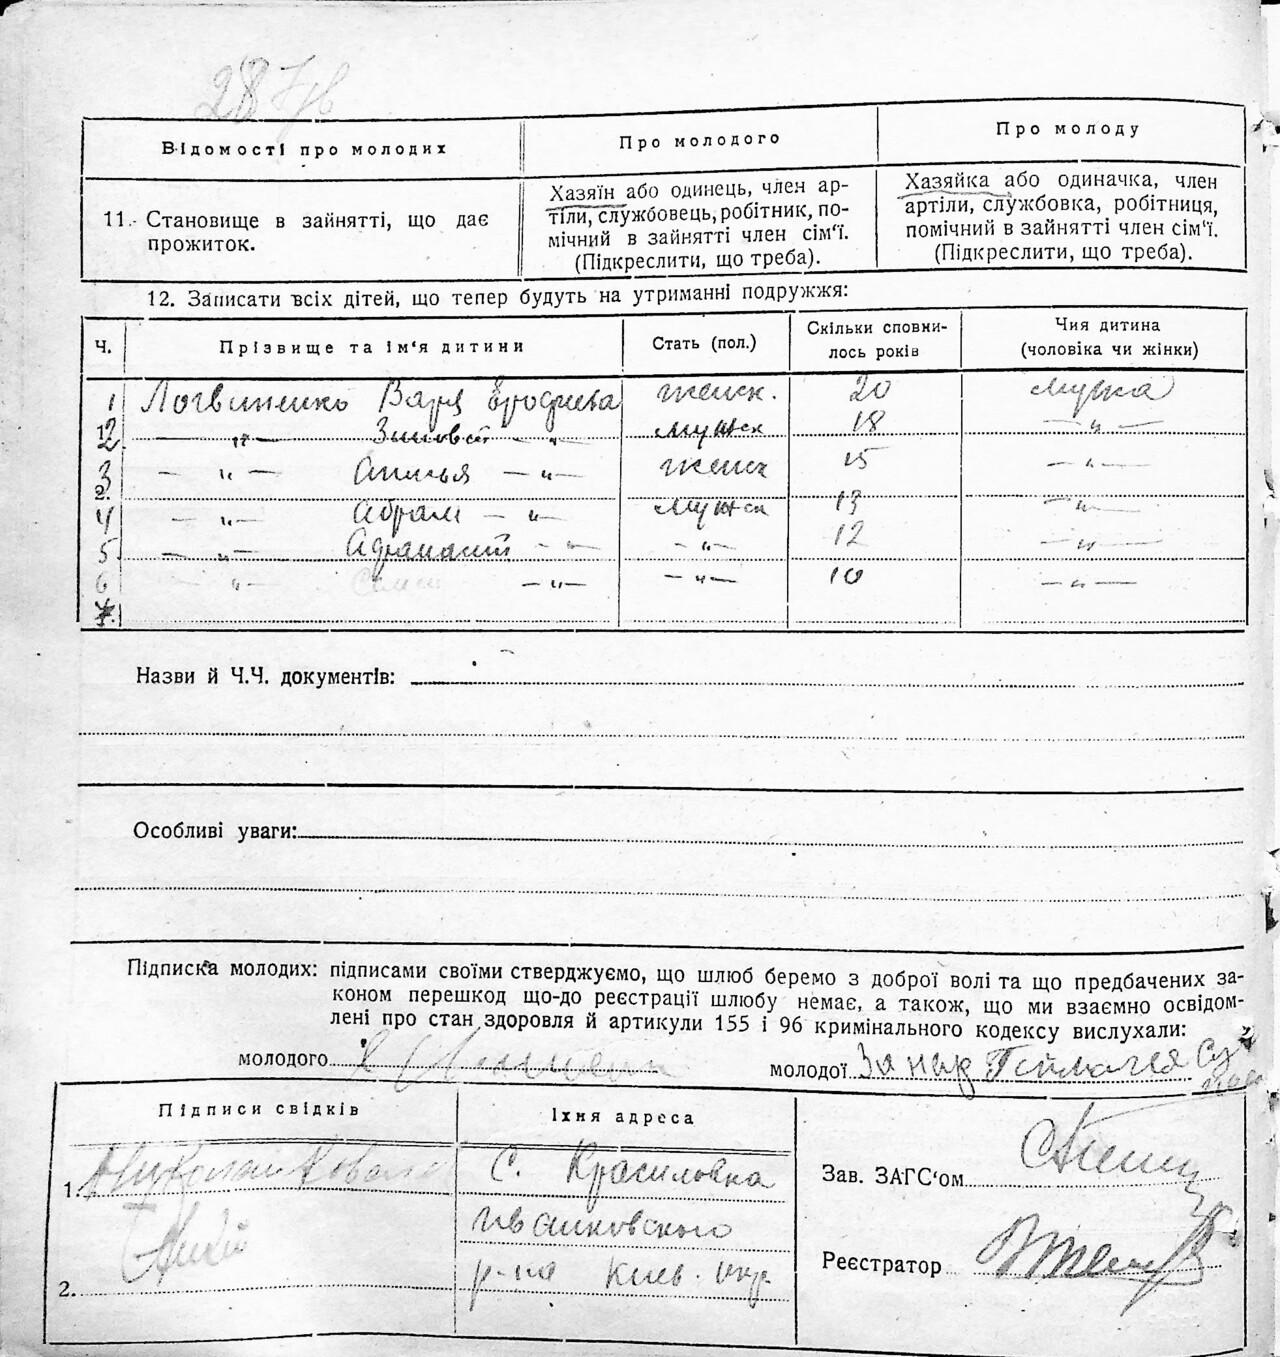 Відомості про молодих
Про молодого
Про молоду
11. Становище в зайнятті, що дає
прожиток.
Хазяїн або одинець, член ар-
тіли, службовець, робітник, по-
мічний в зайнятті член сім'ї.
(Підкреслити, що треба).
Хазяйка або одиначка, член
артіли, службовка, робітниця,
помічний в зайнятті член сім'ї.
(Підкреслити, що треба).
12. Записати всіх дітей, що тепер будуть на утриманні подружжя:
Ч. Прізвище та ім'я дитини Стать (пол.) Скільки сповни-
лось років Чия дитина
(чоловіка чи жінки)
1 Логвиненко Варя женск. 20 мужа
2 — „ — Зиновий — „ — мужск 18 — „ —
3 — „ — — „ — женск 15 — „ —
4 — „ — Абрам — „ — мужск 13 — „ —
5. — „ — — „ — — „ — 12 — „ —
6 — „ — — „ — — „ — 10 — „ —
7.
Назви й Ч.Ч. документів:
Особливі уваги:
Підписка молодих: підписами своїми стверджуємо, що шлюб беремо з доброї волі та що предбачених за-
коном перешкод що-до реєстрації шлюбу немає, а також, що ми взаємно освідом-
лені про стан здоровля й артикули 155 і 96 кримінального кодексу вислухали:
молодого
молодої За нар
Підписи свідків
Їхня адреса
1.
С. Красиловка
Иванковского
р-на Киев. окр.
2.
Зав. ЗАГС'ом
Реєстратор